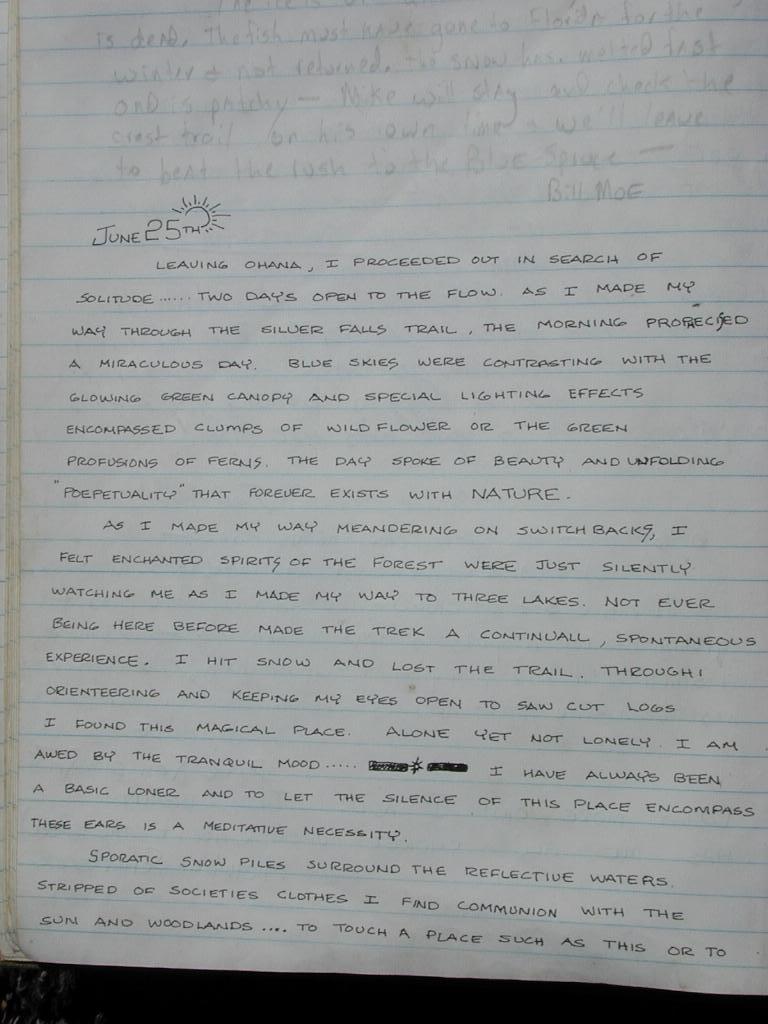 The ice is
is dead. The fish must have gone to Florida for the
winter & not returned. The snow has melted fast
and is patchy — Mike will stay and check the
crest trail on his own time & we'll leave
to beat the rush to the Blue Spruce —
Bill Moe
JUNE 25TH
LEAVING OHANA, I PROCEEDED OUT IN SEARCH OF
SOLITUDE...... TWO DAYS OPEN TO THE FLOW. AS I MADE MY
WAY THROUGH THE SILVER FALLS TRAIL, THE MORNING
A MIRACULOUS DAY. BLUE SKIES WERE CONTRASTING WITH THE
GLOWING GREEN CANOPY AND SPECIAL LIGHTING EFFECTS
ENCOMPASSED CLUMPS OF WILDFLOWER OR THE GREEN
PROFUSIONS OF FERNS. THE DAY SPOKE OF BEAUTY AND UNFOLDING
"POEPETUALITY" THAT FOREVER EXISTS WITH NATURE.
AS I MADE MY WAY MEANDERING ON SWITCHBACKS, I
FELT ENCHANTED SPIRITS OF THE FOREST WERE JUST SILENTLY
WATCHING ME AS I MADE MY WAY TO THREE LAKES. NOT EVER
BEING HERE BEFORE MADE THE TREK A CONTINUALL, SPONTANEOUS
EXPERIENCE. I HIT SNOW AND LOST THE TRAIL. THROUGH
ORIENTEERING AND KEEPING MY EYES OPEN TO SAW CUT LOGS
I FOUND THIS MAGICAL PLACE. ALONE YET NOT LONELY. I AM
AWED BY THE TRANQUIL MOOD..... I HAVE ALWAYS BEEN
A BASIC LONER AND TO LET THE SILENCE OF THIS PLACE ENCOMPASS
THESE EARS IS A MEDITATIVE NECESSITY.
SPORATIC SNOW PILES SURROUND THE REFLECTIVE WATERS.
STRIPPED OF SOCIETIES CLOTHES I FIND COMMUNION WITH THE
SUN AND WOODLANDS.... TO TOUCH A PLACE SUCH AS THIS OR TO